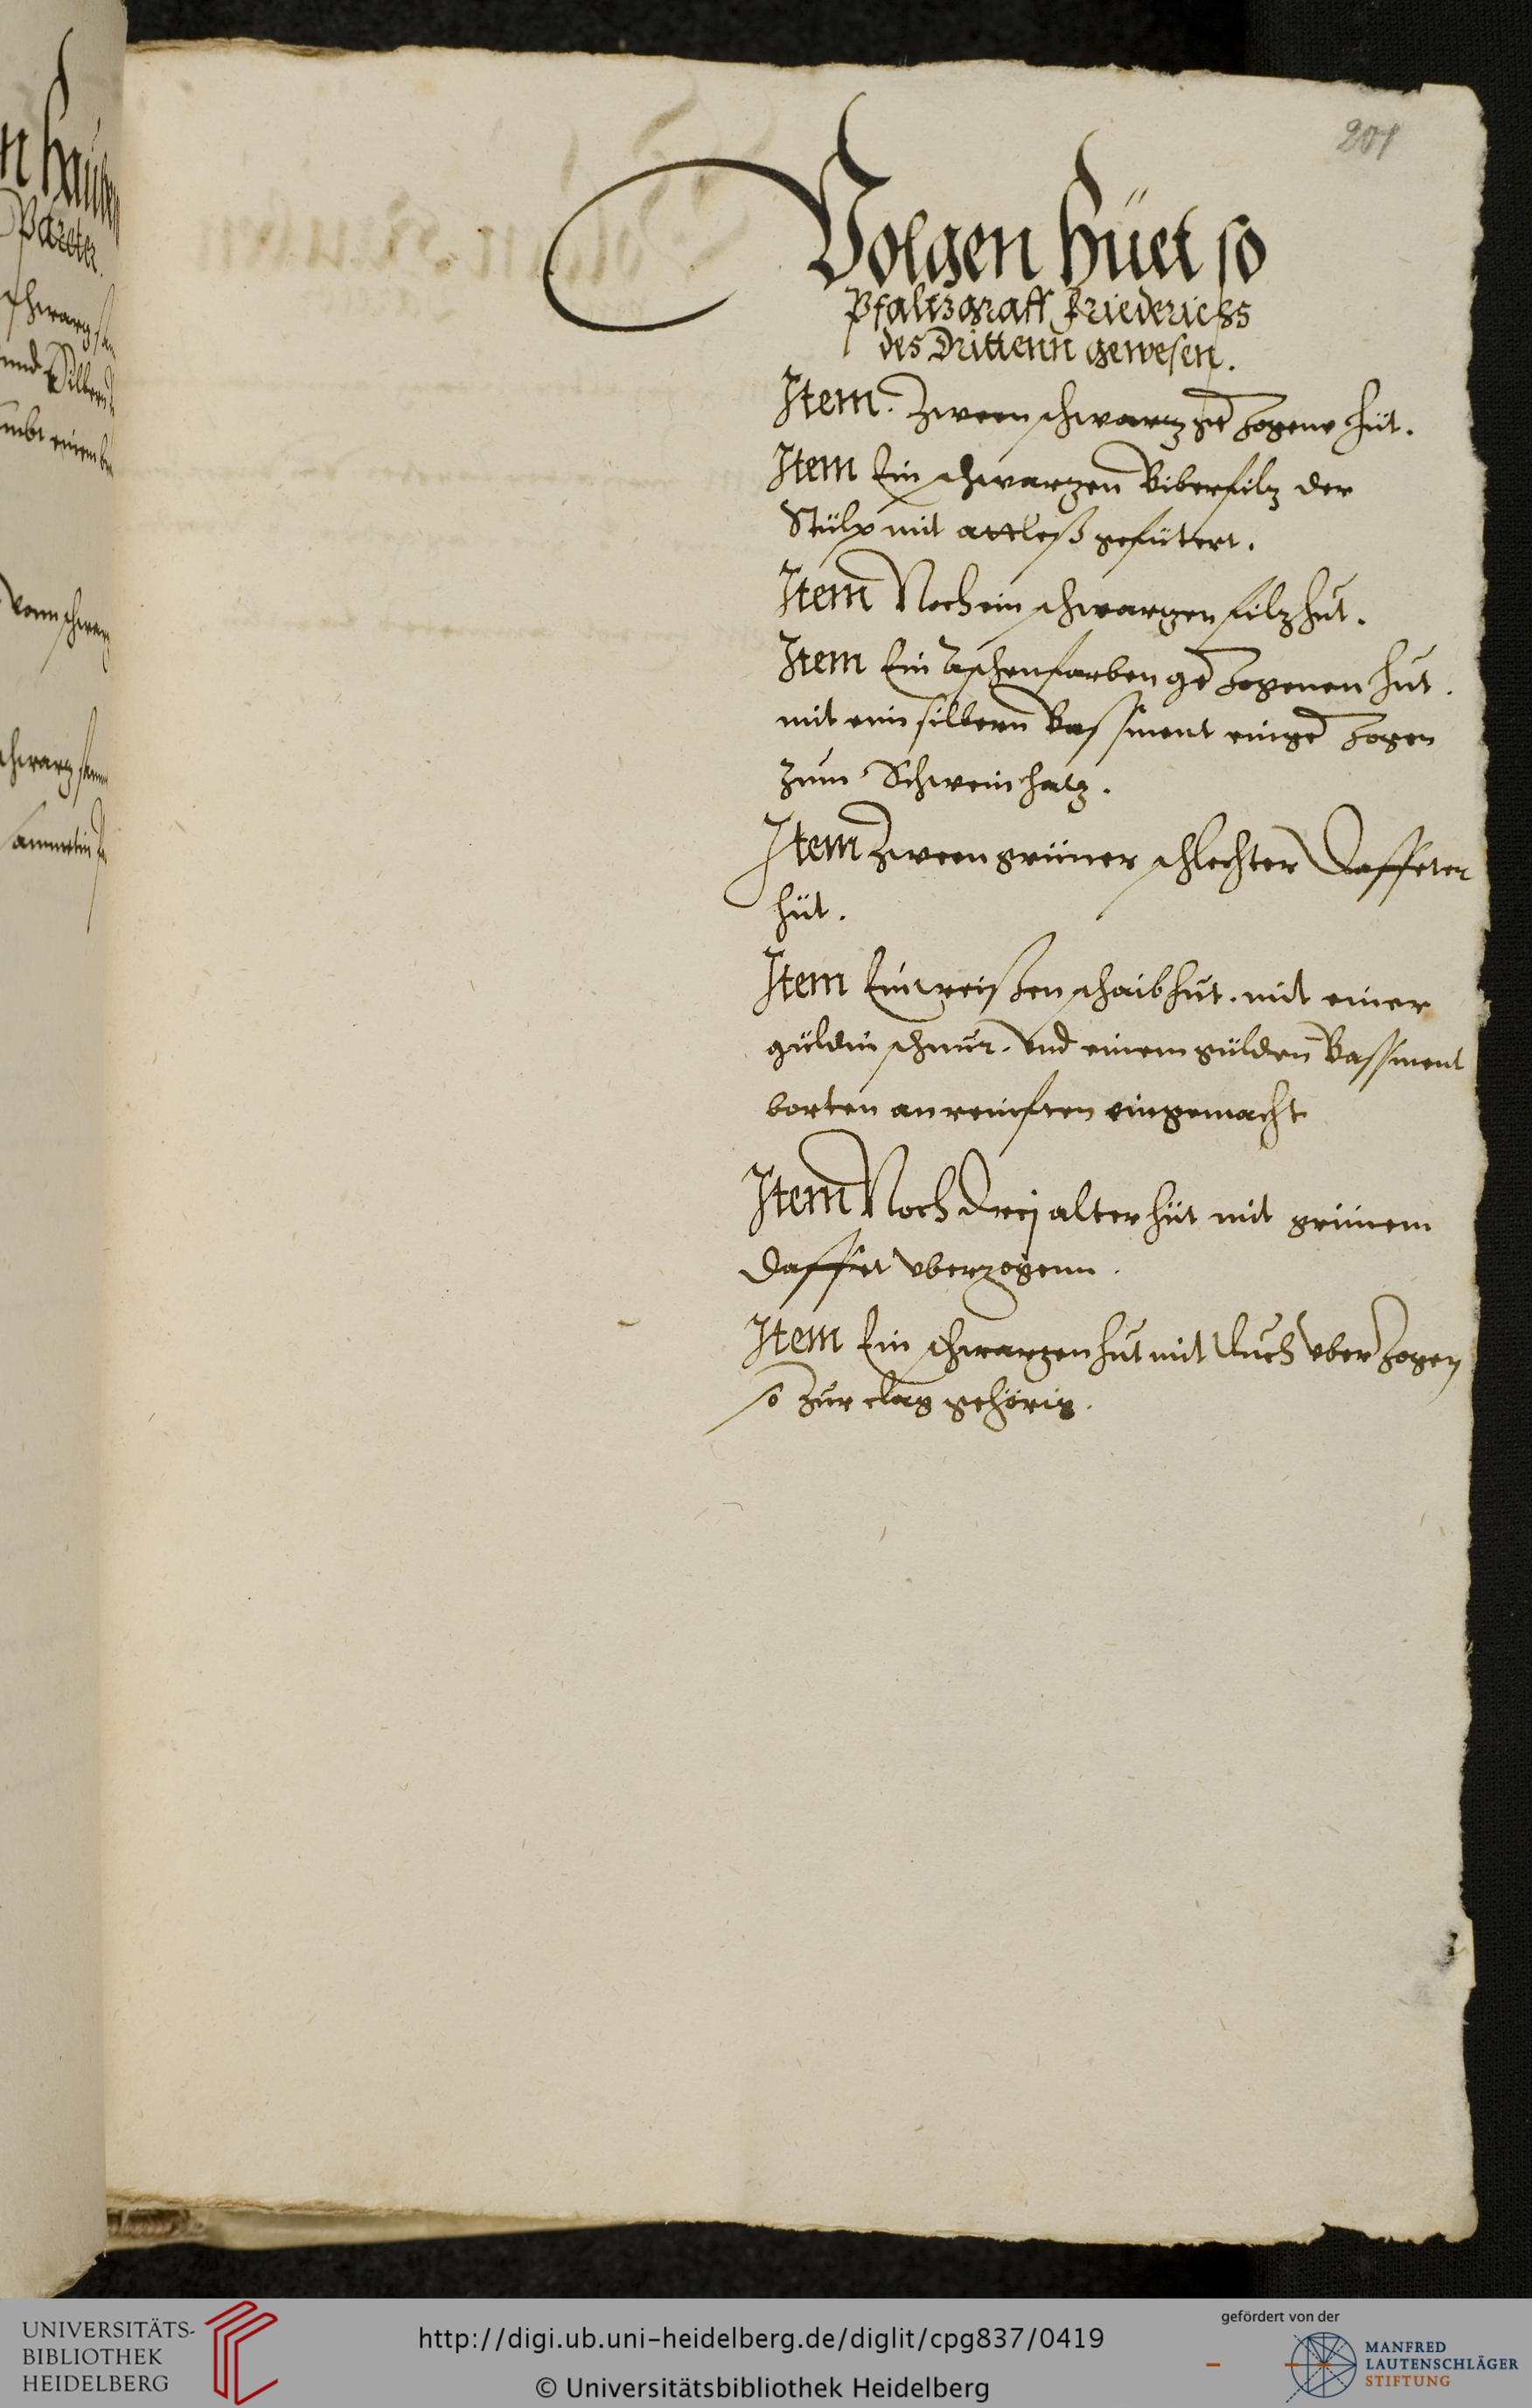 201
Volgen hüet so
Pfaltzgraff Friederichs
des Drittenn gewesen.
Item. Zween schwartz gezogene hüt.
Item Ein schwartzen Biberfiltz der
Stülp mit attleß gefütert.
Item Noch ein schwartzen filtzhut.
Item Ein Aschenfarben gezogenen hut.
mit eim silbern Bassment eingezogen
zum Schweinhatz.
Item Zween grüner schlechter Daffeter
hüt.
Item Ein weissen schaibhut. mit einer
güldin schnur. und einem gülden Bassment
borten eingemacht
Item Noch drej alter hüt mit grünem
Daffet uberzogenn.
Item Ein schwartzen hut mit tuch uberzogen
so zur clag gehörig.
n hauben
Pareter.
schwartz
und Silbern
sambt einem
vonn schwartz
schwartz
sammetin
UNIVERSITÄTS-
BIBLIOTHEK
HEIDELBERG
http://digi.ub.uni-heidelberg.de/diglit/cpg837/0419
© Universitätsbibliothek Heidelberg
gefördert von der
MANFRED
LAUTENSCHLÄGER
STIFTUNG